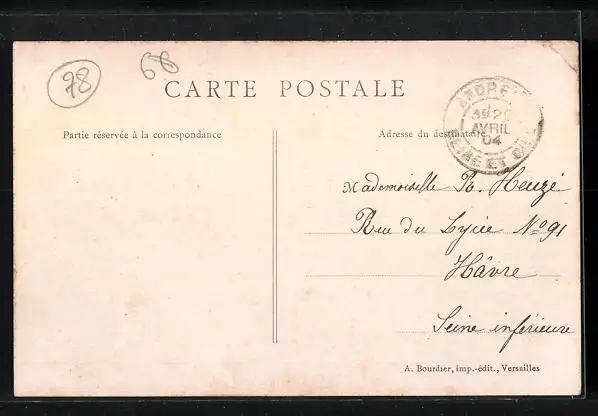 78
68
CARTE POSTALE
Partie réservée à la correspondance
Adresse du destinataire
ANDRE
AVRIL
04
SEINE ET OISE
Mademoiselle R. Heuzé
Rue du Lycée No 91
Hâvre
Seine inférieure
A. Bourdier, imp.-édit., Versailles